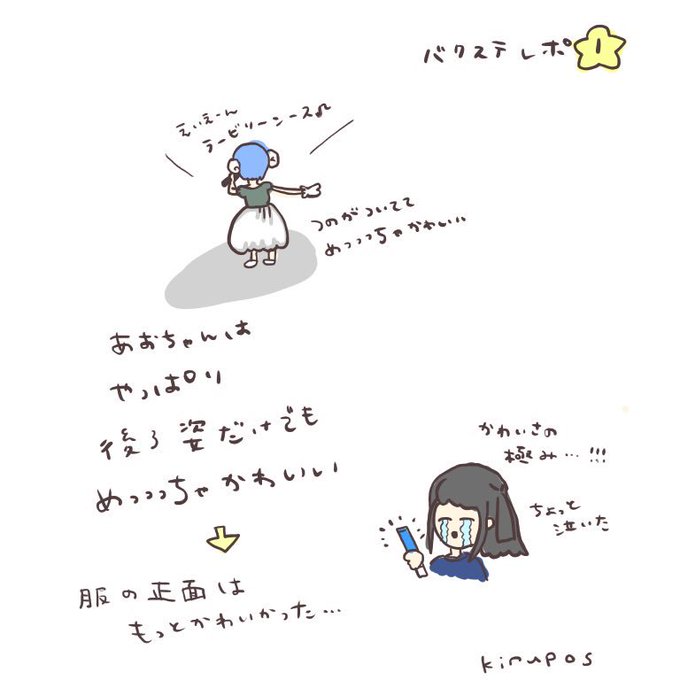 バクステレポ
えいえーん
ラービリーンース♪
つのがついてて
めっっっちゃかわいい
あおちゃんは
やっぱり
後ろ姿だけでも
めっっっちゃかわいい
服の正面は
もっとかわいかった…
かわいさの
極み…!!!
ちょっと
泣いた
kirupos